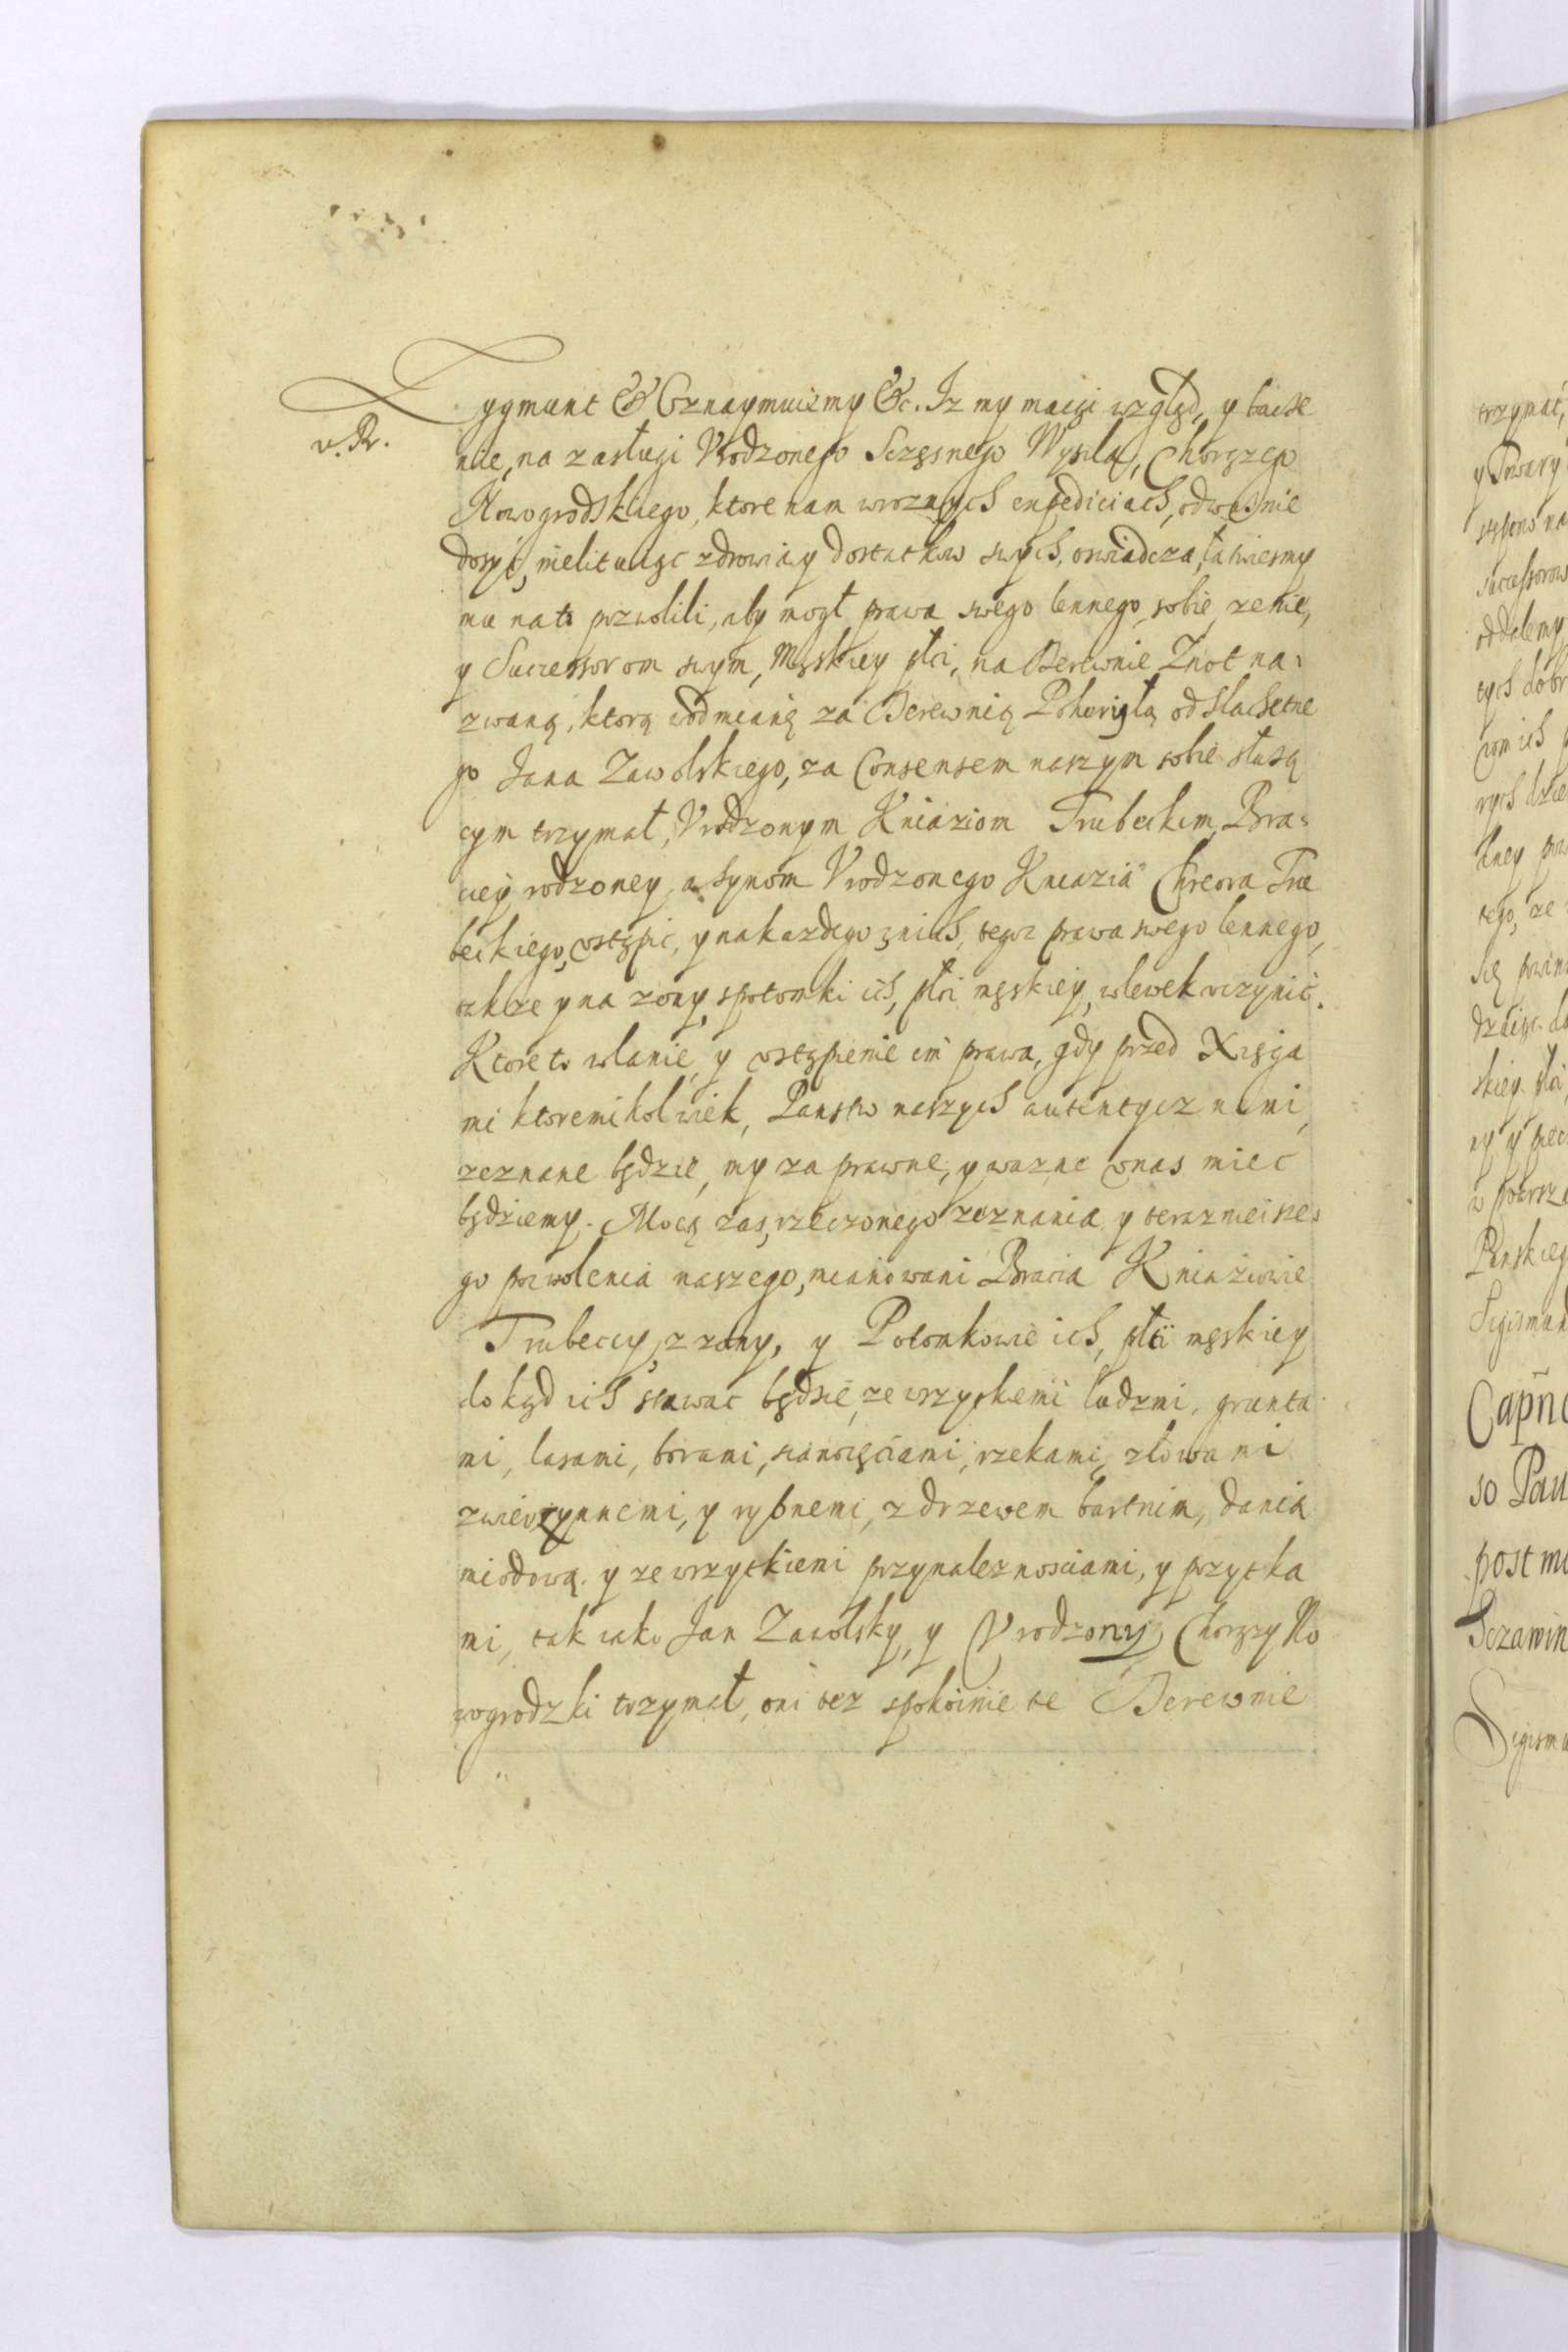 Zygmunt &c Oznaymuiemy &c. Iz my maiąi wzgląd, y bacze
v. R.
nie, na zasługi Vrodzonego Sczęsnego Wysila, Chorązego
Nowogrodskiego, ktore nam wroznych expediciach, odwaznie
dosyć, nielituiąc zdrowia y dostatkow swych, oswiadcza, ła twiesmy
mu nato pozwolili, aby mogł prawa swego lennego, sobie, zenie,
y Successorom swym, Męskiey płci, na Derewnie Znot na:
zwaną, ktorą wodmianę za Derewnię Pohoriełą od Slachetne
go Jana Zawolskiego, za Consensem naszym sobie słuzą
cym trzymał, Vrodzonym Kniaziom Trubeckim, Bra:
ciey rodzoney, a synom Vrodzonego Kniazia Trubeckiego
beckiego, vstąpic, y nakazdego znich, tegoz prawa swego lennego,
takze y na zony, y potomki ich, płci męskiey, wlewek vczynić.
Ktore to wlanie, y vstąpienie im prawa, gdy przed Xięga
mi ktoremikolwiek, Panstw naszych autentycznemi,
zeznane będzie, my za prawne, y wazne vnas miec
będziemy. Mocą zas, rzeczonego zeznania y teraznieisze:
go pozwolenia naszego, mianowani Bracia Kniaziowie
Trubeccy, z zony, y Potomkowie ich, płci męskiey
dokąd ich stawac będzie, ze wszytkiemi ludzmi, grunta
mi, lasami, borami, sianozęciami, rzekami, z łowami
zwierzynnemi, y rybnemi, z drzewem bartnim, dania
miodową. y ze wszytkiemi przynaleznosciami, y pozytka
mi, tak iako Jan Zawolsky, y Vrodzony Chorązy No
wogrodzki trzymał, oni tez spokoinie te Derewnie
trzymać,
y Towary
Capnc
so Pau
post mo
Sczawin
Sigismu